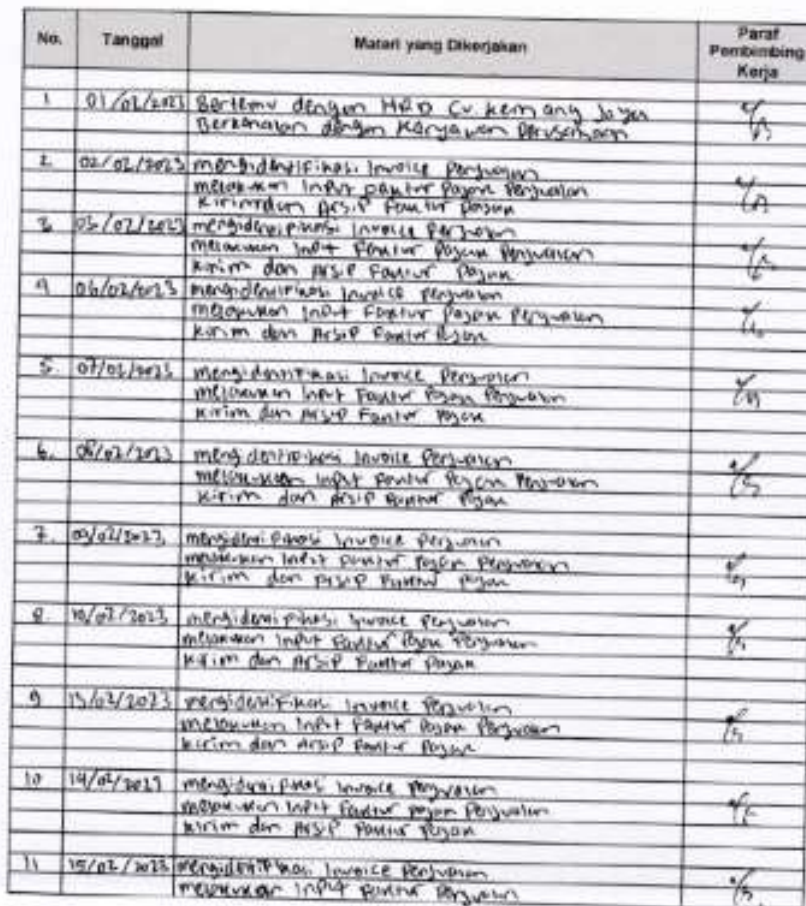 No. Tanggal Materi yang Dikerjakan Paraf Pembimbing Kerja
1 01/02/2023 Bertemu dengan HRD CV. Kemang Jaya
Berkenalan dengan Karyawan Perusahaan
2. 02/02/2023 mengidentifikasi Invoice Penjualan
melakukan Input Faktur Pajak Penjualan
Kirim dan Arsip Faktur Pajak
3 03/02/2023 mengidentifikasi Invoice Penjualan
melakukan Input Faktur Pajak Penjualan
Kirim dan Arsip Faktur Pajak
4 06/02/2023 mengidentifikasi Invoice Penjualan
melakukan Input Faktur Pajak Penjualan
Kirim dan Arsip Faktur Pajak
5. 07/02/2023 mengidentifikasi Invoice Penjualan
melakukan Input Faktur Pajak Penjualan
Kirim dan Arsip Faktur Pajak
6. 08/02/2023 mengidentifikasi Invoice Penjualan
melakukan Input Faktur Pajak Penjualan
Kirim dan Arsip Faktur Pajak
7. 09/02/2023 mengidentifikasi Invoice Penjualan
melakukan Input Faktur Pajak Penjualan
Kirim dan Arsip Faktur Pajak
8. 10/02/2023 mengidentifikasi Invoice Penjualan
melakukan Input Faktur Pajak Penjualan
Kirim dan Arsip Faktur Pajak
9 13/02/2023 mengidentifikasi Invoice Penjualan
melakukan Input Faktur Pajak Penjualan
Kirim dan Arsip Faktur Pajak
10 14/02/2023 mengidentifikasi Invoice Penjualan
melakukan Input Faktur Pajak Penjualan
Kirim dan Arsip Faktur Pajak
11 15/02/2023 mengidentifikasi Invoice Penjualan
melakukan Input Faktur Penjualan